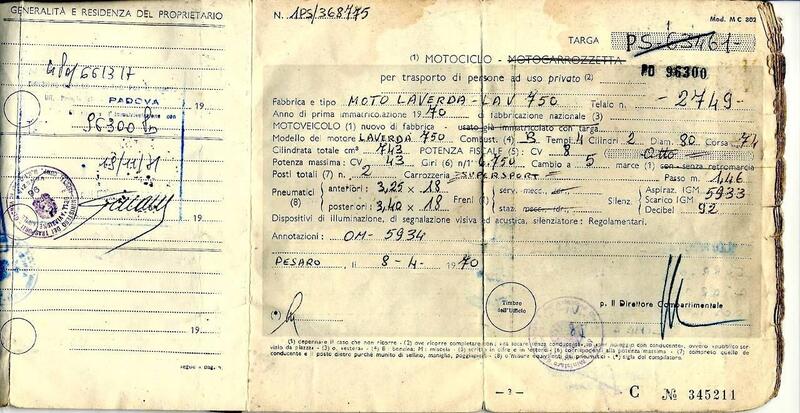 GENERALITÀ E RESIDENZA DEL PROPRIETARIO
PADOVA
19
96300
18/11/81
19
19
19
segue a Pag. 4
N. 1PS/368775
Mod. M C 802
TARGA PS 63461
PD 96300
(1) MOTOCICLO - MOTOCARROZZETTA
per trasporto di persone ad uso privato (2)
Fabbrica e tipo MOTO LAVERDA - LAV 750 Telaio n. - 2749 -
Anno di prima immatricolazione 1970 di fabbricazione nazionale (3)
MOTOVEICOLO (1) nuovo di fabbrica - usato già immatricolato con targa
Modello del motore LAVERDA 750 Combust. (4) B Tempi 4 Cilindri 2 Diam. 80 Corsa 74
Cilindrata totale cm³ 743 POTENZA FISCALE (5): CV 8 Otto
Potenza massima: CV 43 Giri (6) n/1' 6.750 Cambio a 5 marce (1) con - senza retromarcia
Posti totali (7) n. 2 Carrozzeria SUPERSPORT Passo m. 1,46
Pneumatici (8) anteriori: 3,25 x 18 Freni (1) serv.: mecc., idr., Silenz. Aspiraz. IGM 5933
posteriori: 3,40 x 18 staz.: mecc., idr., Scarico IGM
Decibel 92
Dispositivi di illuminazione, di segnalazione visiva ed acustica, silenziatore: Regolamentari.
Annotazioni: OM - 5934
PESARO, il 8 - 4 - 1970
(*)
Timbro dell'Ufficio
p. Il Direttore Compartimentale
(1) depennare il caso che non ricorre - (2) ove ricorre completare con:
conducente e il posto dietro purchè munito di sellino, maniglie, poggiapiedi - (8) o misure equivalenti dei pneumatici - (*) sigla del compilatore.
— 3 —
C № 345211